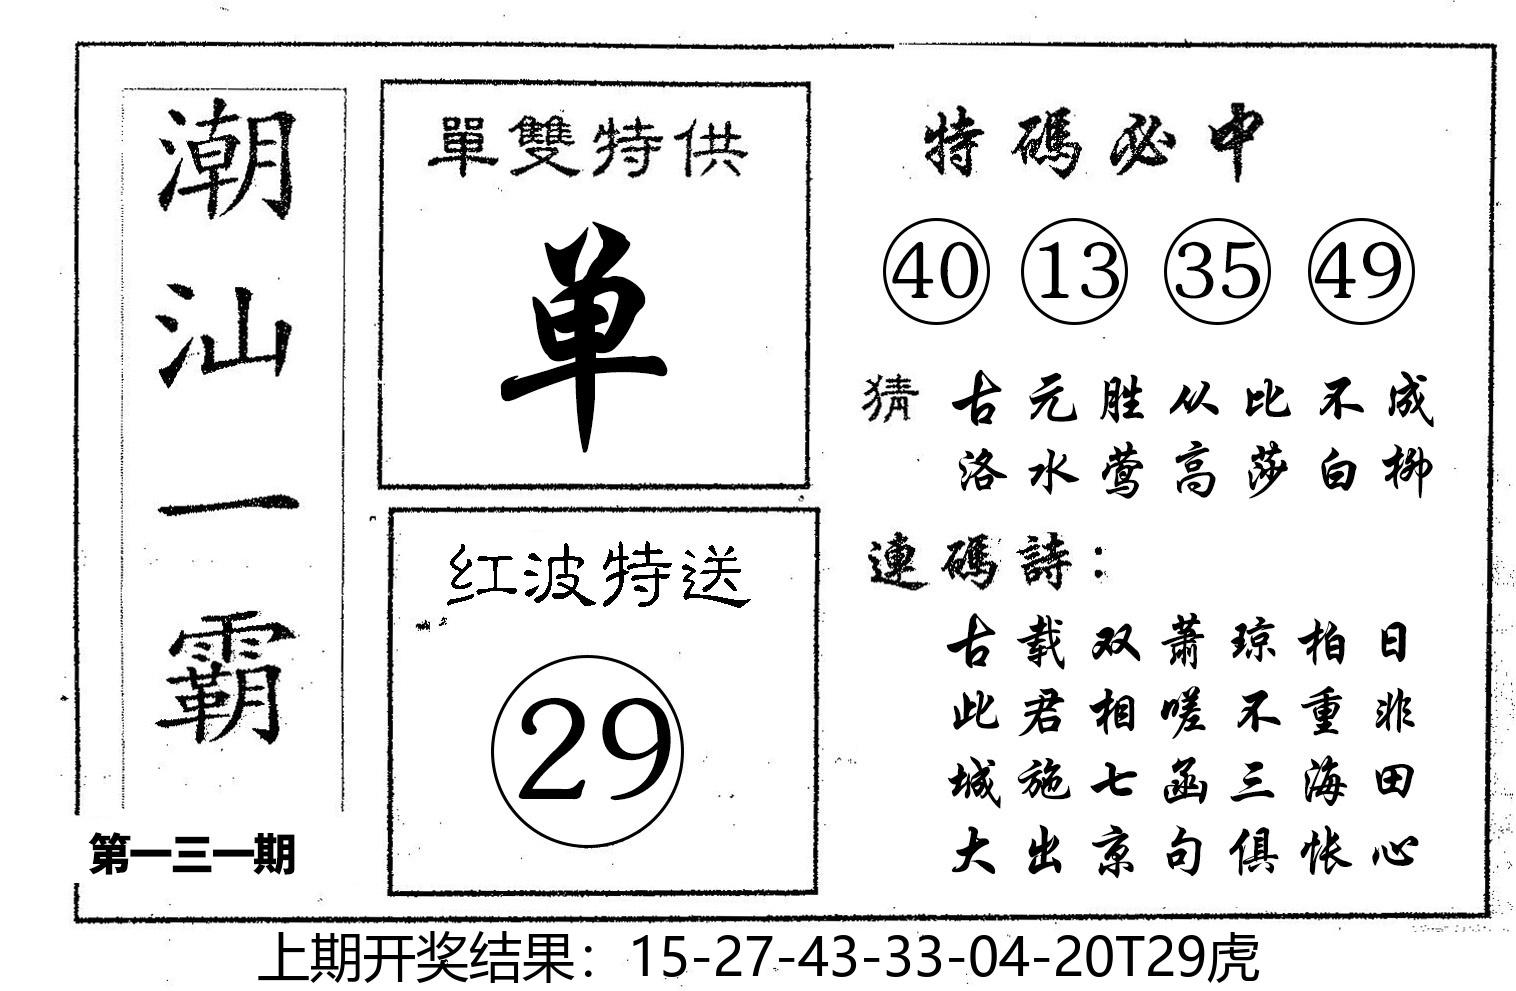 潮汕一霸
第一三一期
單雙特供
单
红波特送
29
特碼必中
40 13 35 49
猜 古元胜从比不成
洛水莺高莎白柳
連碼詩：
古载双萧琼柏日
此君相嗟不重非
城施七函三海田
大出京句俱怅心
上期开奖结果：15-27-43-33-04-20T29虎